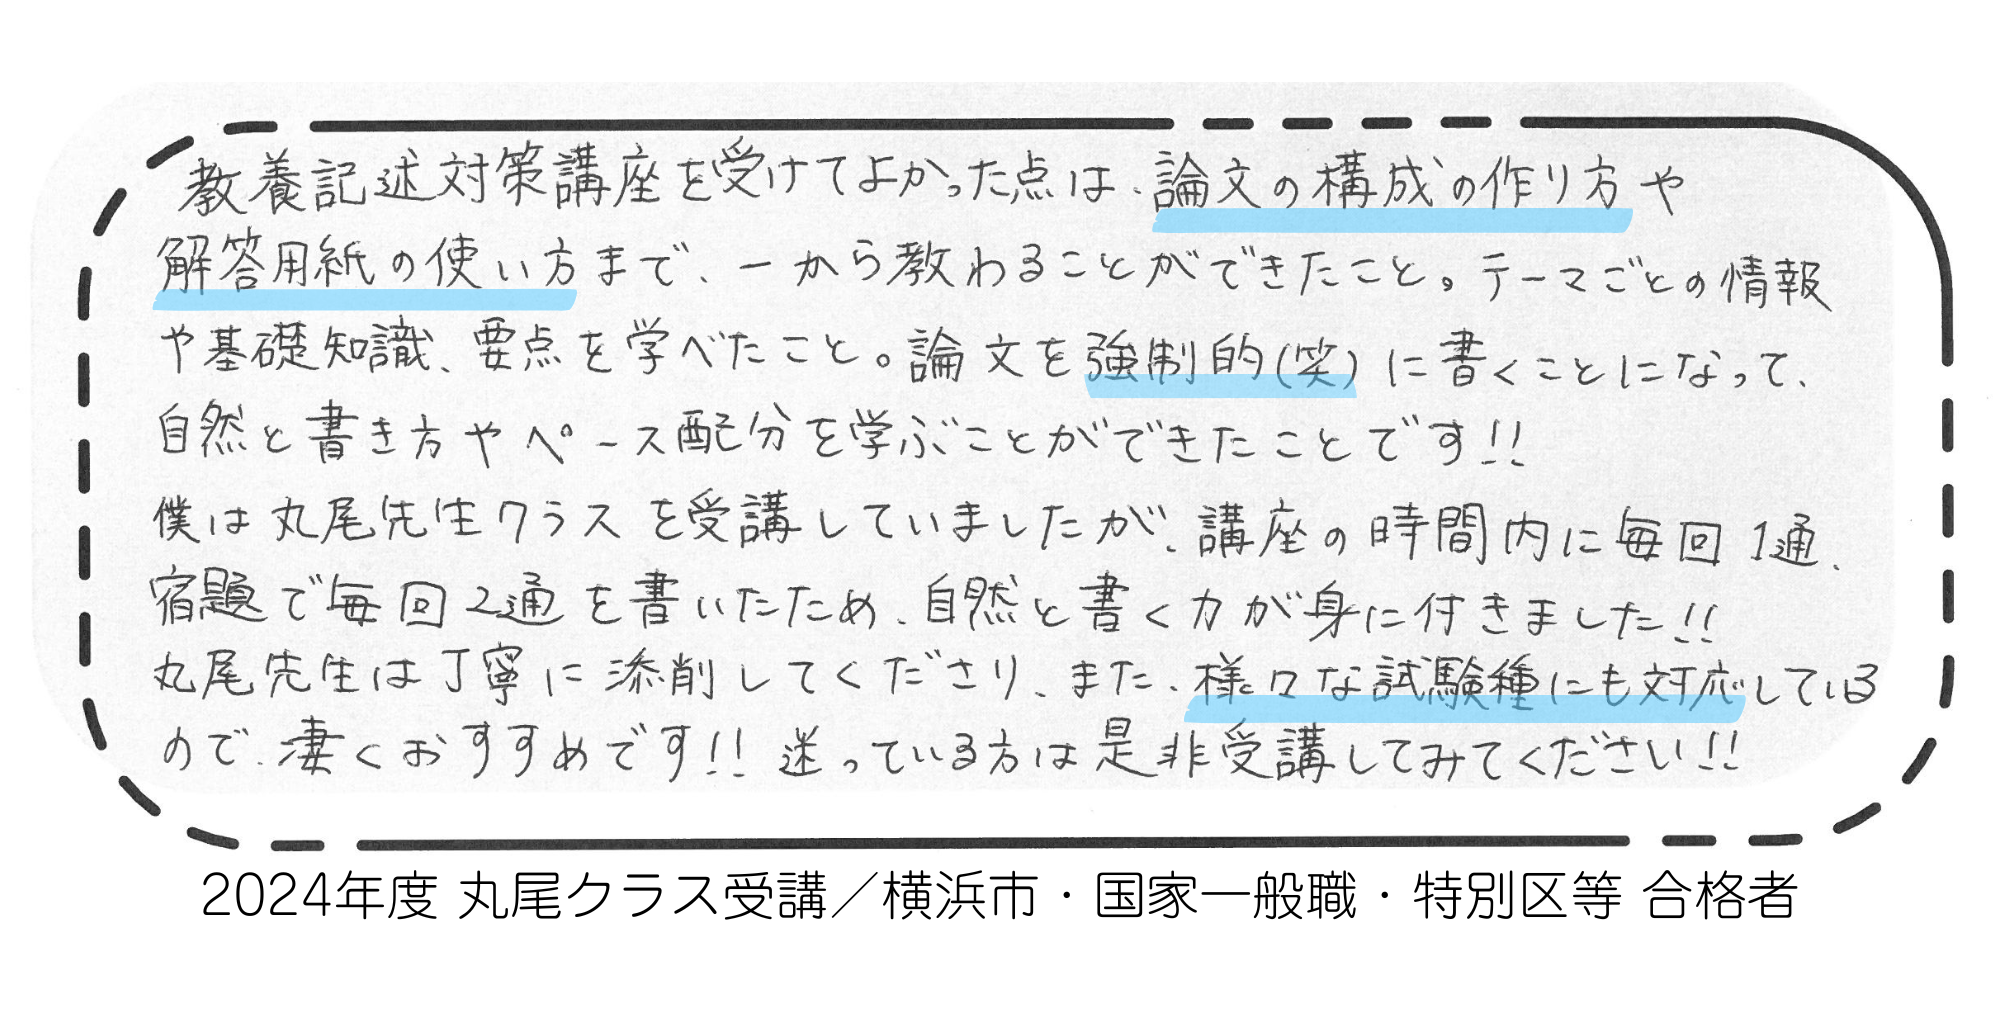 教養記述対策講座を受けてよかった点は、論文の構成の作り方や
解答用紙の使い方まで、一から教わることができたこと。テーマごとの情報
や基礎知識、要点を学べたこと。論文を強制的(笑)に書くことになって、
自然と書き方やペース配分を学ぶことができたことです!!
僕は丸尾先生クラスを受講していましたが、講座の時間内に毎回1通、
宿題で毎回2通を書いたため、自然と書く力が身に付きました!!
丸尾先生は丁寧に添削してくださり、また、様々な試験種にも対応している
ので、凄くおすすめです!! 迷っている方は是非受講してみてください!!
2024年度 丸尾クラス受講／横浜市・国家一般職・特別区等 合格者